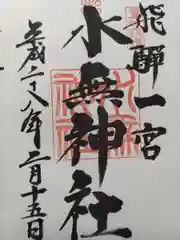 飛騨一宮
水無神社
平成二十八年二月十五日